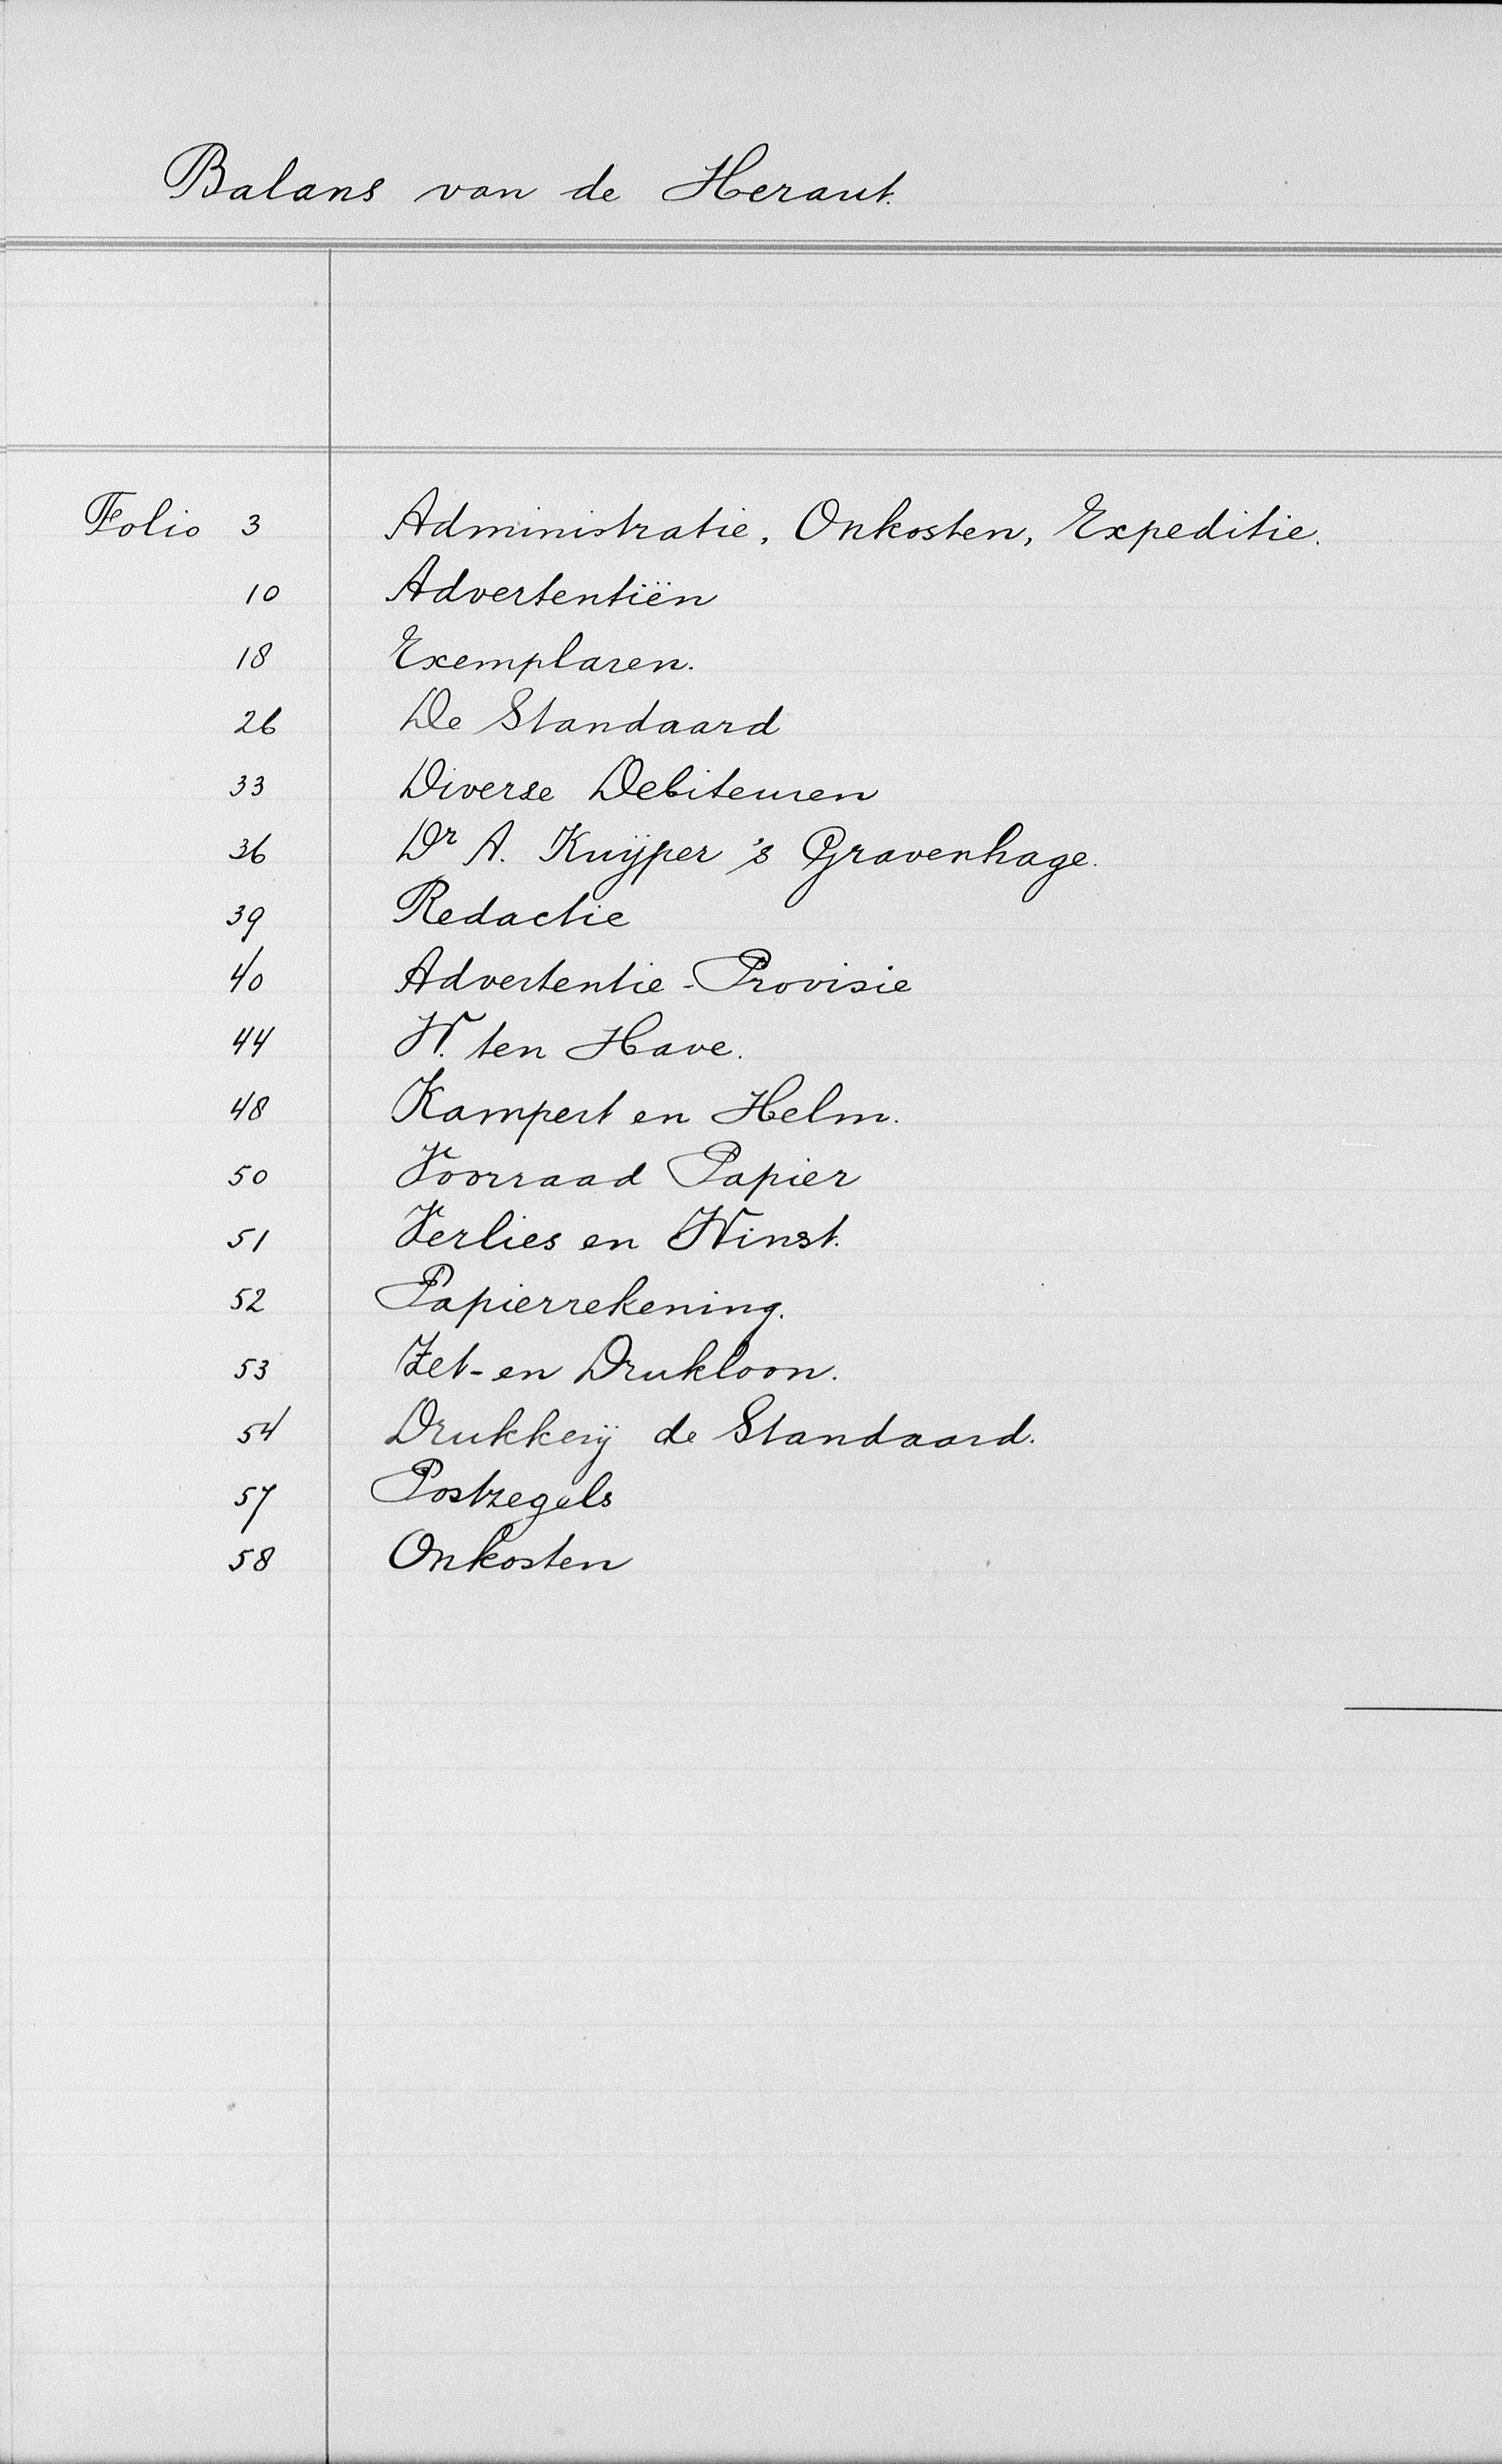 Balans van de Heraut.
Folio 3 Administratie, Onkosten, Expeditie.
10 Advertentiën
18 Exemplaren.
26 De Standaard
33 Diverse Debiteuren
36 Dr A. Kuijper 's Gravenhage.
39 Redactie
40 Advertentie-Provisie
44 W. ten Have.
48 Kampert en Helm.
50 Voorraad Papier
51 Verlies en Winst.
52 Papierrekening.
53 Zet-en Drukloon.
54 Drukkerij de Standaard.
57 Postzegels
58 Onkosten